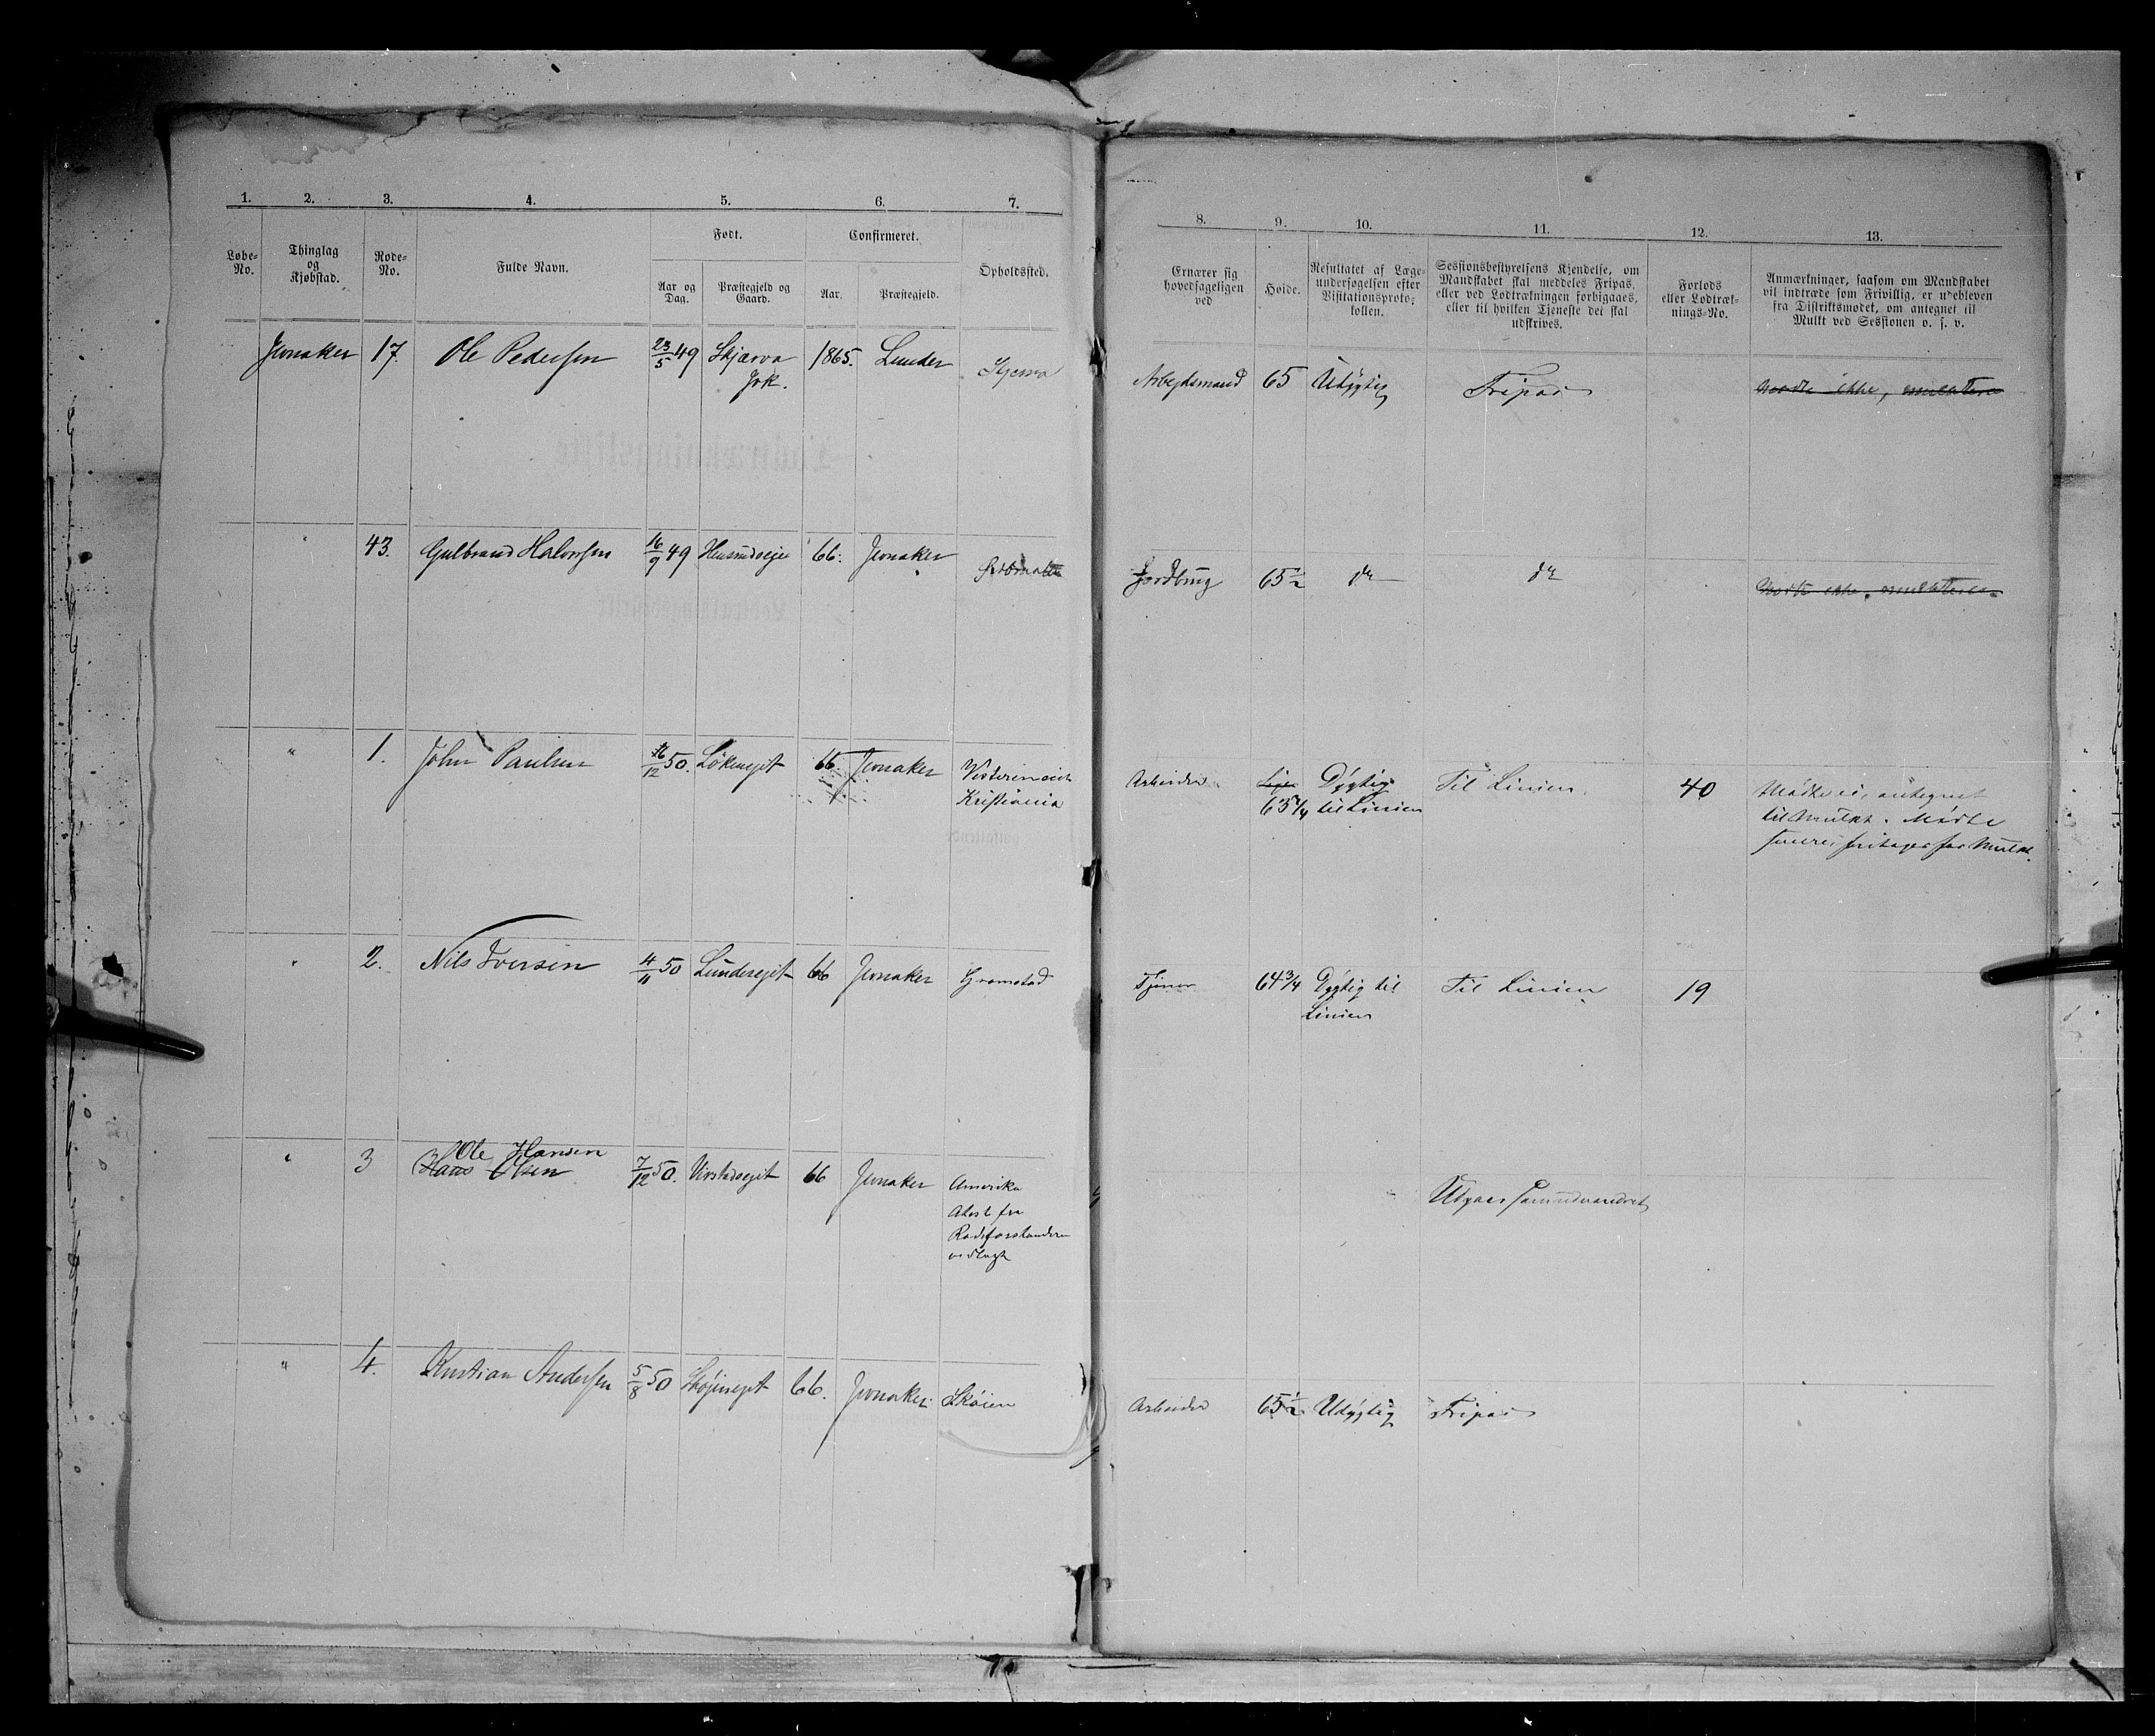 1. 2. 3. 4. 5. 6. 7.
Løbe-No. Thinglag og Kjøbstad. Rode-No. Fulde Navn. Født. Confirmeret. Opholdssted.
Aar og Dag. Præstegjeld og Gaard. Aar. Præstegjeld.
Jevnaker 17. Ole Pedersen 23/5 49 Skjærva 1865. Lunder
43. Gulbrand Halvorsen 16/9 49 66. Jevnaker
" 1. John Paulsen 16/12 50. Lökenejet 66 Jevnaker
Kristiania
" 2. Nils Iversen 4/11 50 Lundeejet 66 Jevnaker Gramstad
Ole Hansen
" 3 Hans Olsen 7/12 50. 66 Jevnaker Amerika
Atest fra
Rodeforstanderen
vedlagt
" 4. Kristian Andersen 5/8 50 Skøjenejet 66. Jevnaker Skøien
8. 9. 10. 11. 12. 13.
Ernærer sig hovedsageligen ved
Høide.
Resultatet af Læge-
undersøgelsen efter
Visitationsproto-
kollen.
Sessionsbestyrelsens Kjendelse, om
Mandskabet skal meddeles Fripas,
eller ved Lodtrækningen forbigaaes,
eller til hvilken Tjeneste det skal
udskrives.
Forlods
eller Lodtræk-
nings-No.
Anmærkninger, saasom om Mandskabet
vil indtræde som Frivillig, er udebleven
fra Distriktsmødet, om antegnet til
Mulkt ved Sessionen o. s. v.
Arbejdsmand 65 Udygtig Fripas Mødte ikke, mulkteres
Jordbrug 65½ do do Mødte ikke, mulkteres.
Arbeider 63¾ Dygtig Til Linien 40 Mødte ei, antegnet
til Linien til Mulkt. Mødte
senere, fritages for Mulkt.
Tjener 64¾ Dygtig til Til Linien 19
Linien
Udgaar som udvandret
Arbeider 65½ Udygtig Fripas